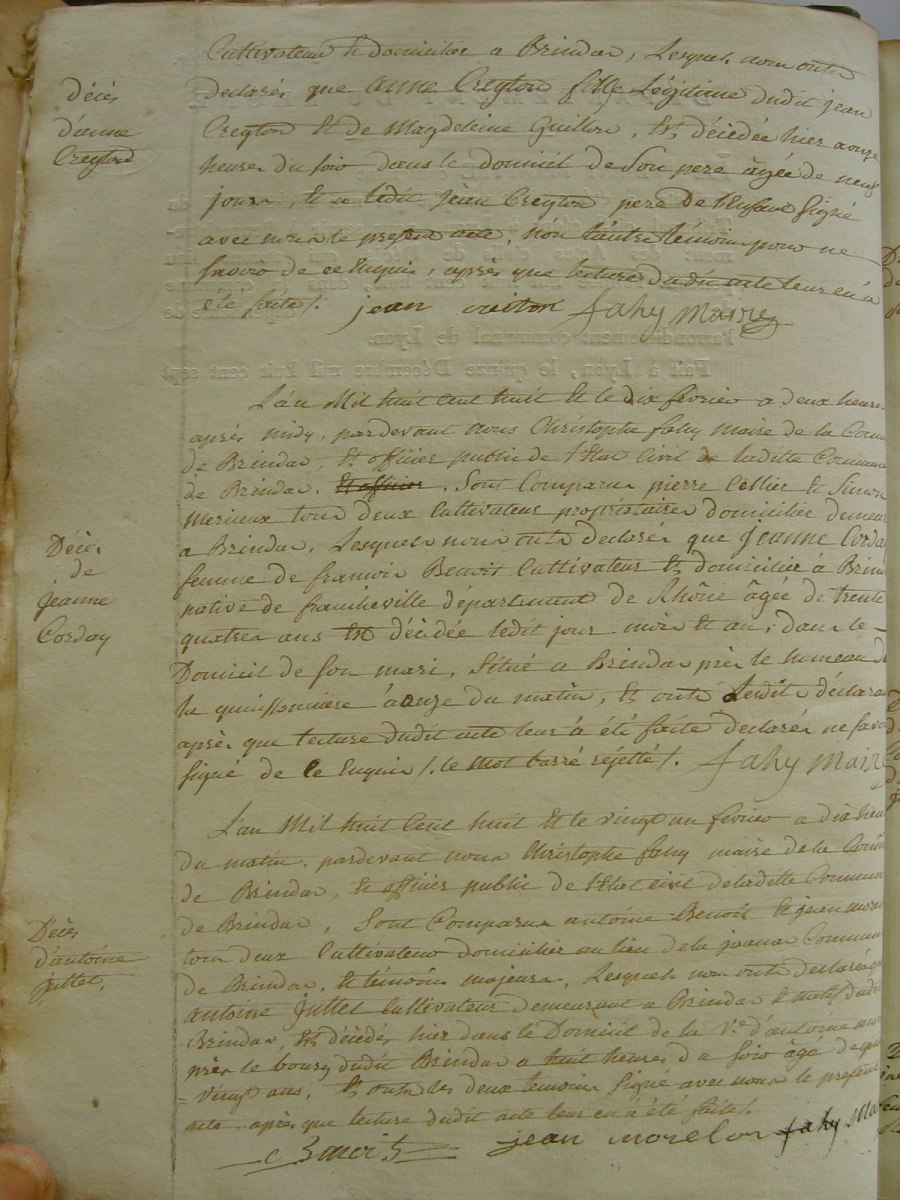 Cultivateur et domicilié a Brindas, Lesquels nous onts
déclarés que Anne Creyton fille Légitime dudit jean
Creyton et de Magdeleine Guillon, est décédée hier a onze
heures du soir dans le domicil de Son pere âgée de neuf
jours, et a ledit Jean Creyton pere de l'Enfant Signé
avec nous le present acte, non l'autre témoin pour ne
Savoir de ce Enquis, après que lecture dudit acte leur en à
été faite /. jean creiton fahy Maire
Décès
d'anne
Creyton
L'an Mil huit Cent huit Et le dix février a deux heures
après midy, pardevant nous Christophe fahy maire de la Comm
de Brindas, Et officier public de l'Etat Civil de laditte Commune
de Brindas. Et officier. Sont Comparus pierre Cellie et Simon
Merieux tous deux Cultivateurs propriétaires domiciliée demeur
a Brindas, Lesquels nous onts déclarés que Jeanne Corda
femme de francois Benoit Cultivateur Et domicilié à Brin
native de francheville département de Rhône âgée de trente
quatres ans Est décédée ledit jour mois et an, dans le
Domicil de Son mari, Situé a Brindas près le hameau de
la quinsonniere à onze du matin, Et onts Lesdits déclaran
après que lecture dudit acte leurs à été faite déclarés ne Savo
Signé de Ce Enquis /. le Mot barré réjetté /. fahy Maire
Décès
de
jéanne
Corday
L'an Mil huit Cent huit Et le vingt un février a dix heu
du matin, pardevant nous Christophe fahy maire de la Comm
de Brindas, Et officier public de l'Etat civil de laditte Commun
de Brindas, Sont Comparus antoine Benoit Et jean morel
tous deux Cultivateurs domicilier au lieu de la Commun
de Brindas, Et témoins majeurs, Lesquels nous onts déclarés q
antoine Juttet Cultivateur demeurant a Brindas Et natif dudit
Brindas, Est décédés hier dans le Domicil de la Ve d'antoine
près le bourg dudit Brindas a huit heures du Soir âgé de qua
=vingt ans, Et onts les deux temoins Signé avec nous le présent
acte, après que lecture dudit acte leur en à été faite /.
Benoit jean morelon fahy Ma
Décès
d'antoine
juttet.